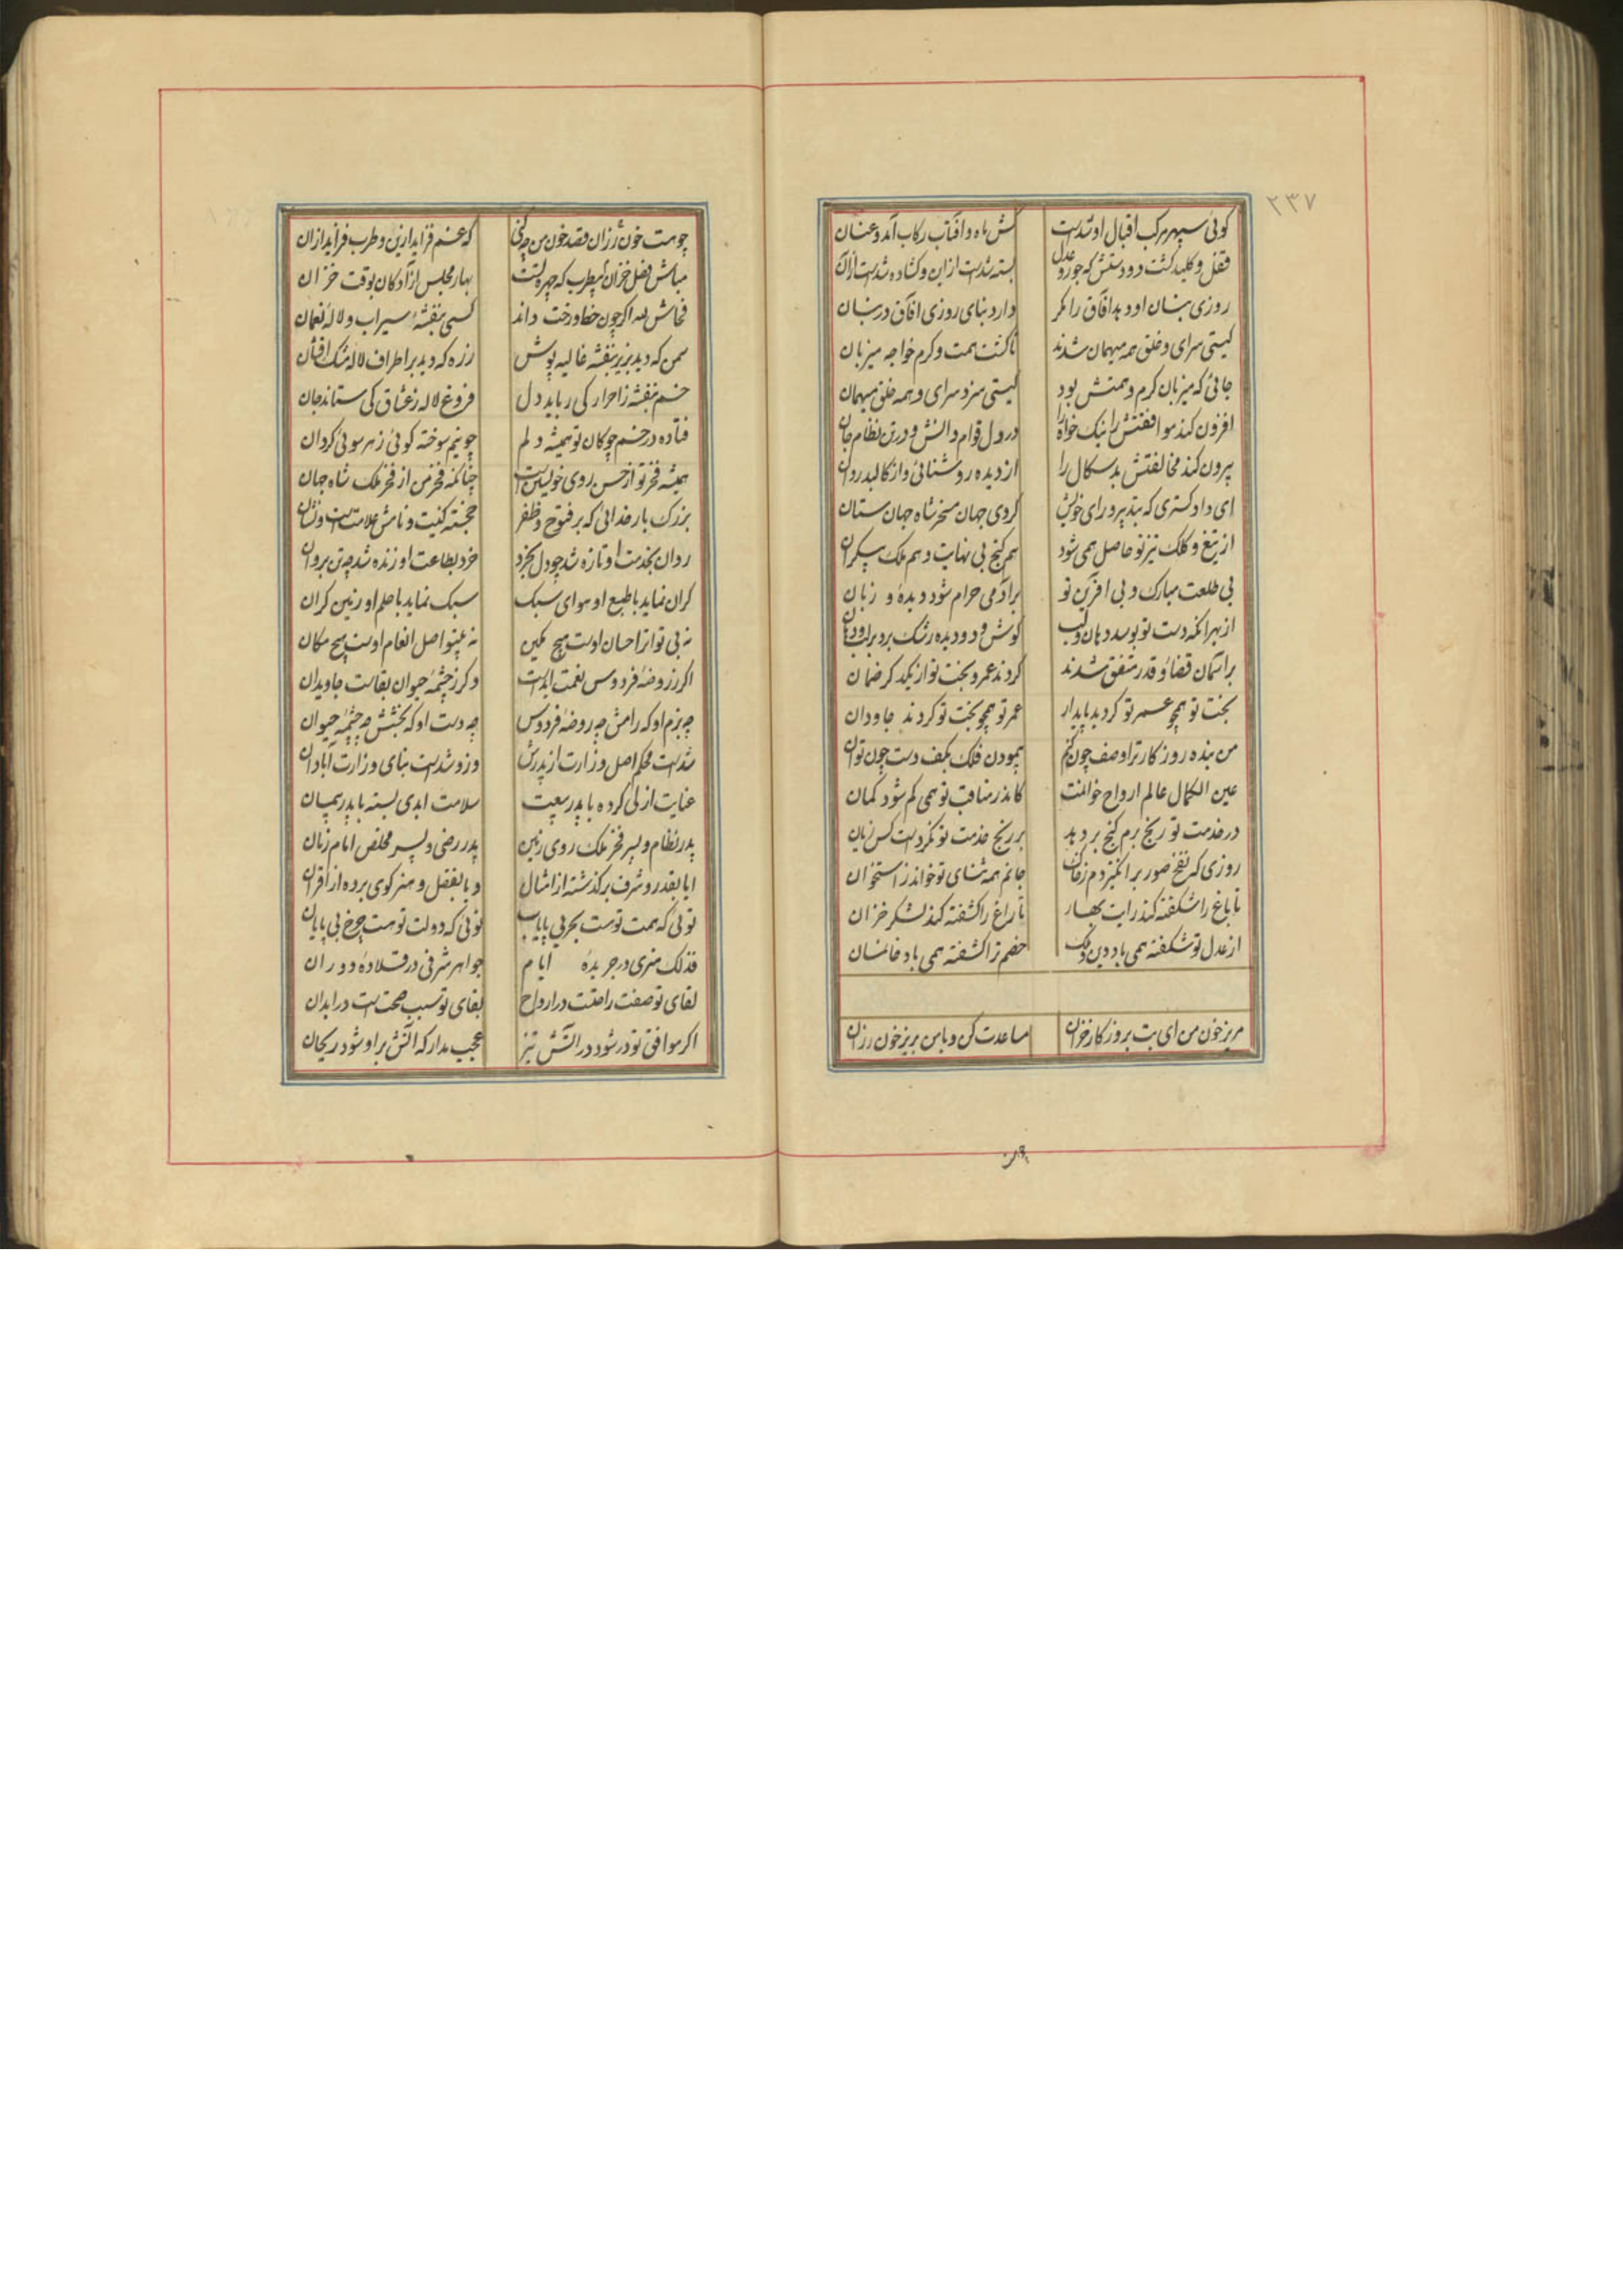 ۲۳۷
کوئی سپهر مرکب اقبال او شدست کش ماه و آفتاب رکاب آمد و عنان
قفل و کلید گشت دو دستش که جور و عدل بسته شدست ازین و گشاده شدست ازان
روزی بنان او دهد آفاق را مگر دارد بنای روزی آفاق در بنان
گیتی سرای و خلق همه میهمان شدند تا گشت همت و کرم خواجه میزبان
جائی که میزبان کرم و همتش بود گیتی سزد سرای و همه خلق میهمان
افزون کند موافقتش را نیک خواه را در دل قوام دانش و در تن نظام جان
بیرون کند مخالفتش بدسگال را از دیده روشنائی و از کالبد روان
ای دادگستری که بتدبیر و رای خویش کردی جهان مسخر شاه جهان ستان
از تیغ و کلک تیز تو حاصل همی شود هم گنج بی نهایت و هم ملک بیکران
بی طلعت مبارک و بی آفرین تو بر آدمی حرام شود دیده و زبان
از بهر آنکه دست تو بوسد دهان و لب گوش و دو دیده رشک برد بر لب و دهان
بر آسمان قضا و قدر متفق شدند کردند عمر و بخت تو از یکدگر ضمان
بخت تو همچو عمر تو کردید پایدار عمر تو همچو بخت تو کردند جاودان
من بنده روزگار ترا وصف چون کنم پیمودن فلک بکف دست چون توان
عین الکمال عالم ارواح خوانمت کاندر مناقب تو همی کم شود گمان
در خدمت تو رنج برم گنج بر دهد بر رنج خدمت تو نکردست کس زیان
روزی که نفخ صور برانگیزدم ز خاک جانم همه ثنای تو خواند ز استخوان
تا باغ را شکفته کند رایت بهار تا راغ را کشفته کند لشکر خزان
از عدل تو شکفته همی باد دین و ملک خصم ترا کشفته همی باد خانمان
مریز خون من ای بت بروزگار خزان مساعدت کن و با من بریز خون رزان
چو هست خون رزان قصد خون من چه کنی که غم فزاید ازین و طرب فزاید ازان
مباش فصل خزان بیطرب که چهره تست بهار مجلس آزادگان بوقت خزان
کسی بنفشه سیراب و لاله نعمان
سمن که دید بزیر بنفشه غالیه پوش زره که دید بر اطراف لاله مشک افشان
خم بنفشه ز احرار کی رباید دل فروغ لاله ز عشاق کی ستاند جان
فتاده در خم چوگان تو همیشه دلم چو نیم سوخته گوئی ز هر سوئی گردان
همیشه فخر تو از حسن روی خویشتن است چنانکه فخر من از فخر ملک شاه جهان
بزرگ بار خدائی که بر فتوح و ظفر خجسته کنیت و نامش علامتست و نشان
روان بخدمت او تازه شد چو دل بخرد خرد بطاعت او زنده شد چو تن بروان
گران نماید با طبع او هوای سبک سبک نماید با حلم او زمین گران
نه بی نوا ز احسان اوست هیچ مکین نه بینوا صل انعام اوست هیچ مکان
اگر ز روضه فردوس نعمت ابدست وگر ز چشمه حیوان بقاست جاویدان
چه بزم او که رامش چه روضه فردوس چه دست او که بخشش چه چشمه حیوان
شدست محکم اصل وزارت از پدرش وزو شدست بنای وزارت آبادان
عنایت ازلی کرده با پدر بیعت سلامت ابدی بسته با پدر پیمان
پدر نظام و پسر فخر ملک روی زمین پدر رضی و پسر مخلص امام زمان
ایا بقدر و شرف برگذشته از امثال و یا بفضل و هنر گوی برده از اقران
توئی که همت تو هست بحر بی پایاب توئی که دولت تو هست چرخ بی پایان
فذلک هنری در جریده ایام جواهر شرفی در قلاده دوران
لقای تو صفت راحتست در ارواح بقای تو سبب صحتست در ابدان
اگر موافق تو در شود در آتش تیز عجب مدار که آتش بر او شود ریحان